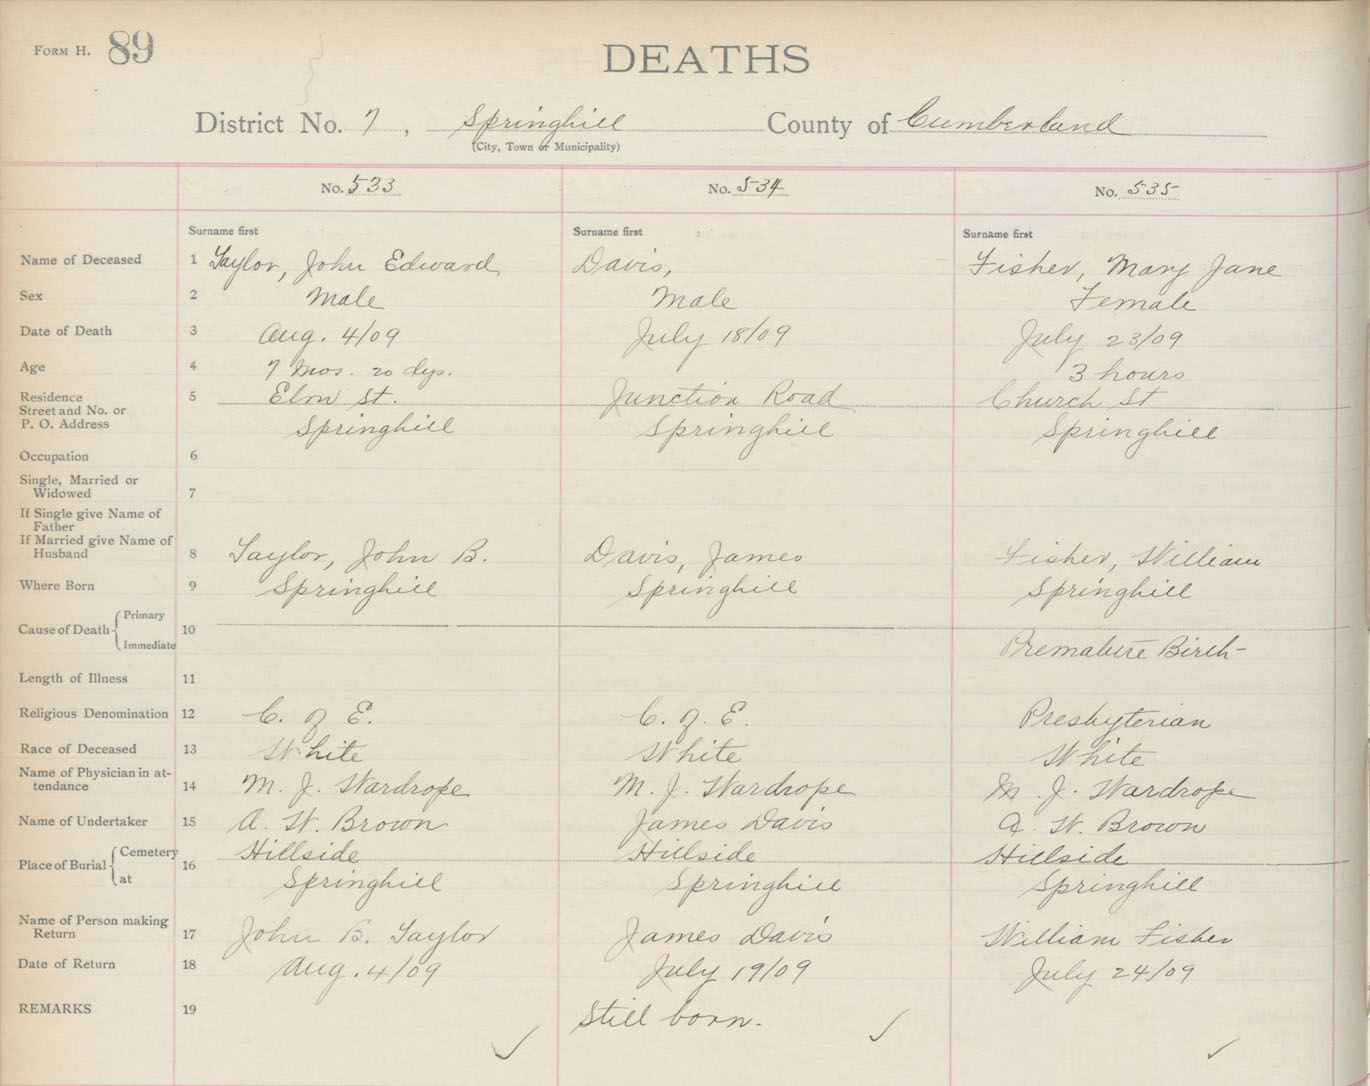 FORM H. 89
DEATHS
District No. 7, Springhill County of Cumberland
(City, Town or Municipality)
No. 533 No. 534 No. 535
Surname first Surname first Surname first
Name of Deceased 1 Taylor, John Edward Davis, Fisher, Mary Jane
Sex 2 Male Male Female
Date of Death 3 Aug. 4/09 July 18/09 July 23/09
Age 4 7 Mos. 20 dys. 3 hours
Residence 5 Elm St. Junction Road Church St
Street and No. or
P. O. Address Springhill Springhill Springhill
Occupation 6
Single, Married or
Widowed 7
If Single give Name of
Father
If Married give Name of
Husband 8 Taylor, John B. Davis, James Fisher, William
Where Born 9 Springhill Springhill Springhill
Cause of Death Primary 10
Immediate Premature Birth
Length of Illness 11
Religious Denomination 12 C. of E. C. of. E. Presbyterian
Race of Deceased 13 White White White
Name of Physician in at-
tendance 14 M. J. Wardrope M. J. Wardrope M. J. Wardrope
Name of Undertaker 15 A. W. Brown James Davis A. W. Brown
Place of Burial Cemetery 16 Hillside Hillside Hillside
at Springhill Springhill Springhill
Name of Person making
Return 17 John B. Taylor James Davis William Fisher
Date of Return 18 Aug. 4/09 July 19/09 July 24/09
REMARKS 19 Still born.